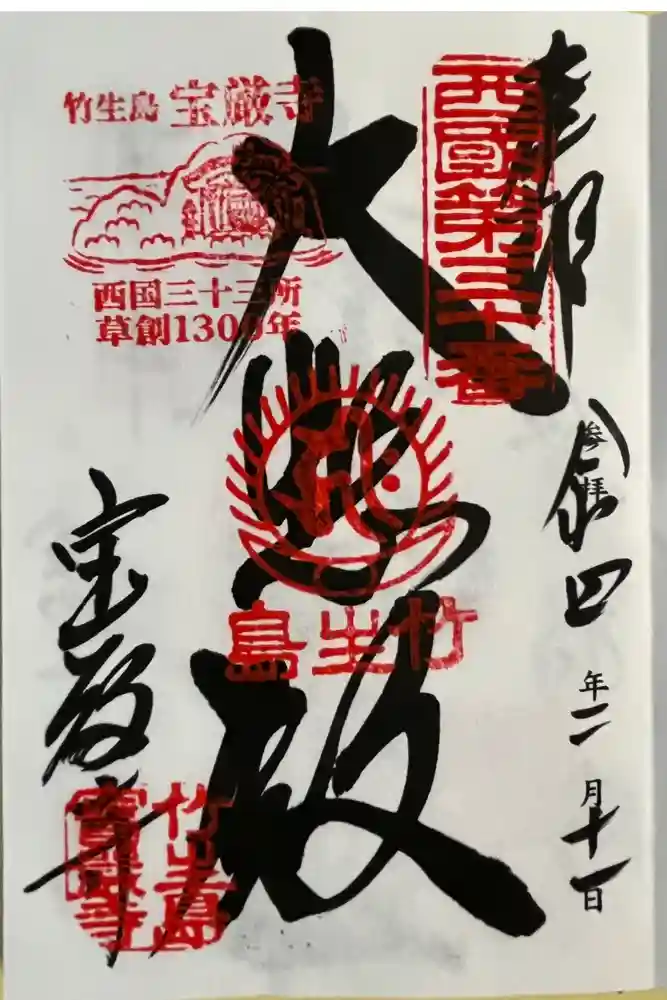 奉拝
参拝
令和四年二月十一日
西國第三十番
大悲殿
竹生島
竹生島 宝厳寺
西国三十三所
草創1300年
宝厳寺
竹生島
寶嚴寺